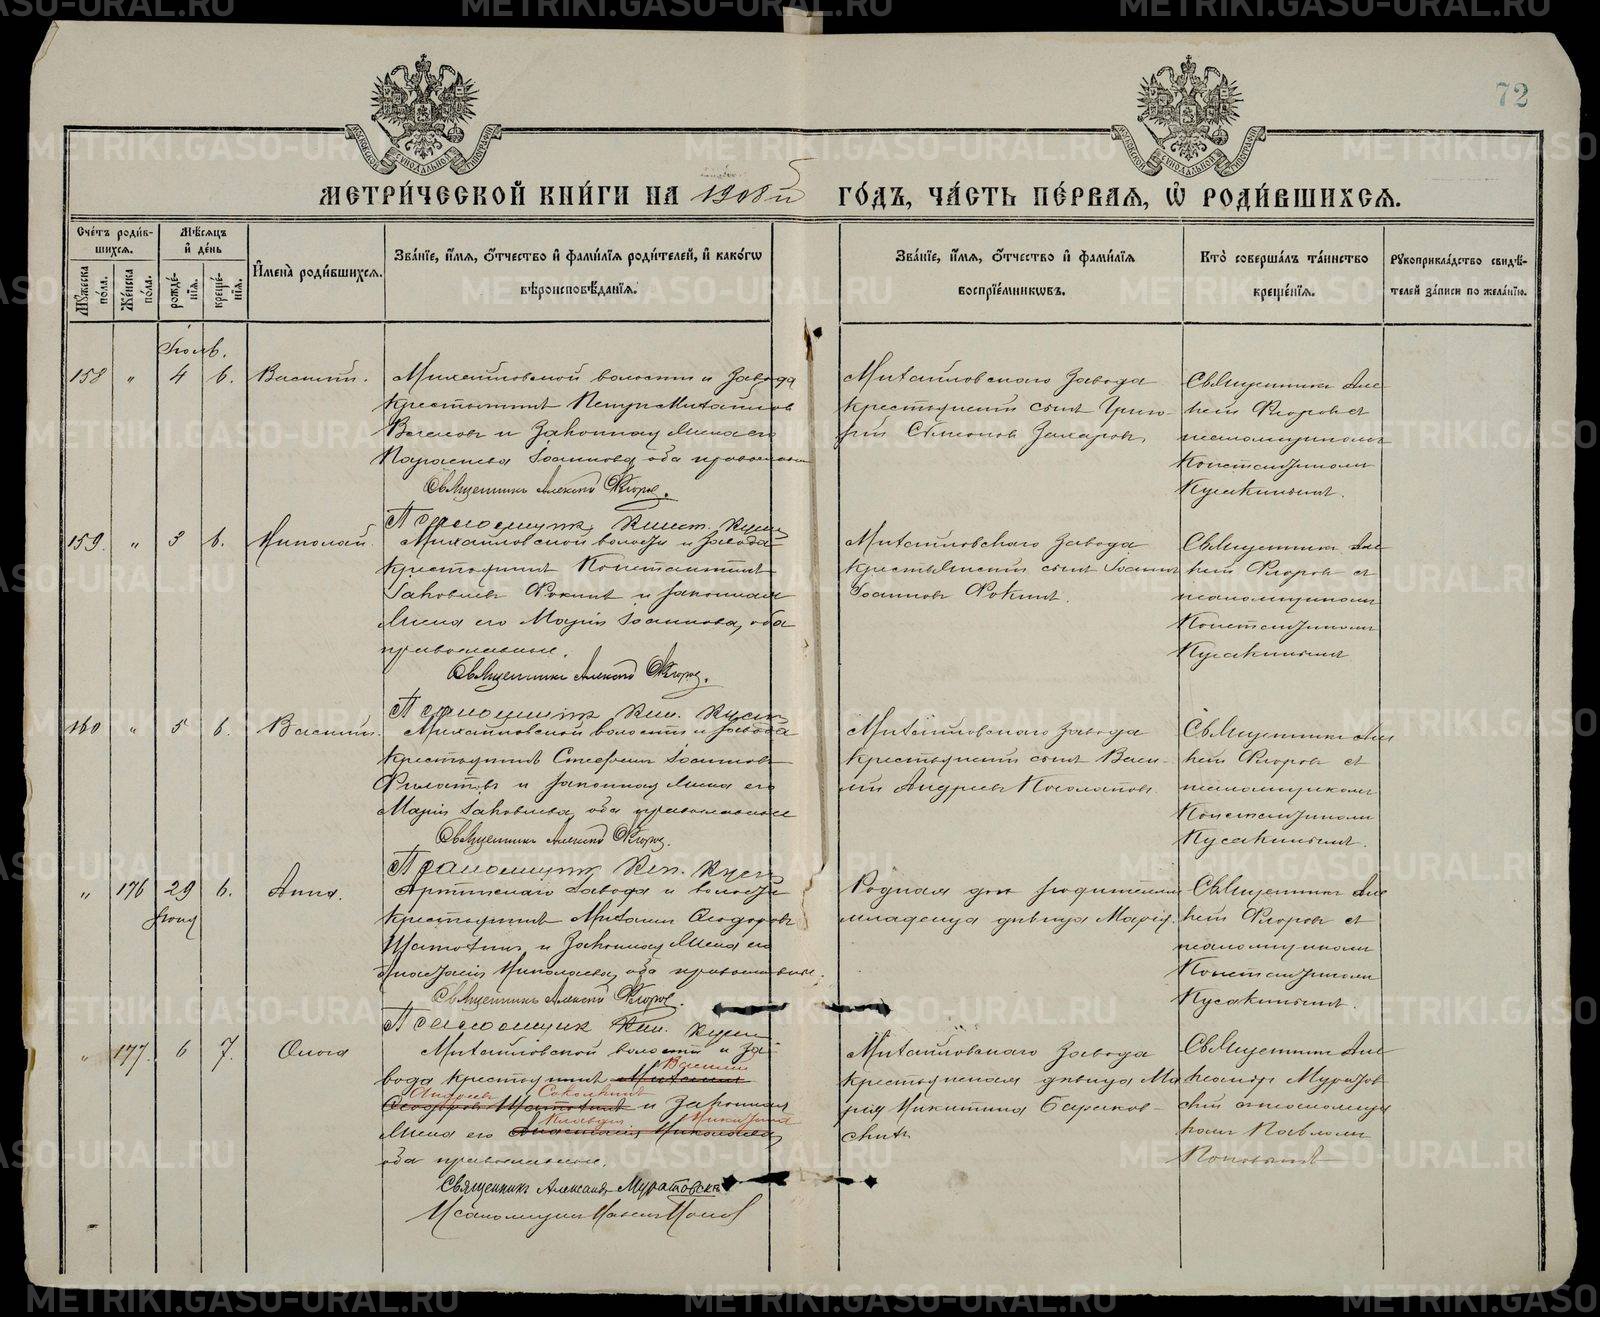 72
МЕТРИ́ЧЕСКОЙ КНИ́ГИ НА 1908й ГО́ДЪ, ЧА́СТЬ ПЕ́РВАЯ, Ѡ РОДИ́ВШИХСЯ.
Сче́тъ роди́вшихся.
Му́жеска по́ла.
Же́нска по́ла.
Мѣ́сяцъ и де́нь
рожде́нія.
креще́нія.
Имена̀ роди́вшихся.
Зва́ніе, и́мя, о́тчество и фами́лія роди́телей, и како́гѡ вѣроисповѣ́данія.
Зва́ніе, и́мя, о́тчество и фами́лія воспріе́мникѡвъ.
Кто̀ соверша́лъ та́инство креще́нія.
Рукоприкла́дство свидѣ́телей за́писи по жела́нію.
Іюль.
158 " 4 6. Василій.
Михайловской волости и завода
крестьянинъ Петръ Михайловъ
и законная жена его
Параскева Іоаннова, оба православные
Священникъ Алексій Флоровъ.
Псаломщикъ Конст.
Михайловскаго завода
крестьянскій сынъ Григорій Симеоновъ Захаровъ
Священникъ Алексѣй Флоровъ съ
псаломщикомъ
Константиномъ
Кусакинымъ.
159. " 3 6. Николай.
Михайловской волости и завода
крестьянинъ Константинъ
Іаковлевъ Фокинъ и законная
жена его Марія Іоаннова, оба
православные.
Священникъ Алексій Флоровъ.
Псаломщикъ Кон.
Михайловскаго завода
крестьянскій сынъ Іоаннъ
Іоанновъ Фокинъ.
Священникъ Алексѣй Флоровъ съ
псаломщикомъ
Константиномъ
Кусакинымъ
160 " 5 6. Василій.
Михайловской волости и завода
крестьянинъ Стефанъ Іоанновъ
Филатовъ и законная жена его
Марія Іаковлева, оба православные
Священникъ Алексій Флоровъ.
Псаломщикъ Кон.
Михайловскаго завода
крестьянскій сынъ Василій Андреевъ
Священникъ Алексѣй Флоровъ съ
псаломщикомъ
Константиномъ
Кусакинымъ.
" 176 29 6. Анна.
Іюня
Артинскаго завода и волости
крестьянинъ Михаилъ Ѳеодоровъ
и законная жена его
Анастасія Николаева, оба православные.
Священникъ Алексій Флоровъ.
Псаломщикъ Кон.
Родная дочь родителей
младенца дѣвица Марія.
Священникъ Алексѣй Флоровъ съ
псаломщикомъ
Константиномъ
Кусакинымъ.
" 177. 6 7. Ольга
Михайловской волости и завода крестьянинъ Михаилъ
Василій
Андреевъ Соколкинъ
Ѳеодоровъ и законная
Клавдія Никитина
жена его Анастасія Николаева
оба православные.
Священникъ Александръ Муратовскій
Псаломщикъ Павелъ Поповъ
Михайловскаго завода
крестьянская дѣвица Марія Никитина
Священникъ Александръ Муратовскій съ псаломщикомъ Павломъ
Поповымъ
METRIKI.GASO-URAL.RU